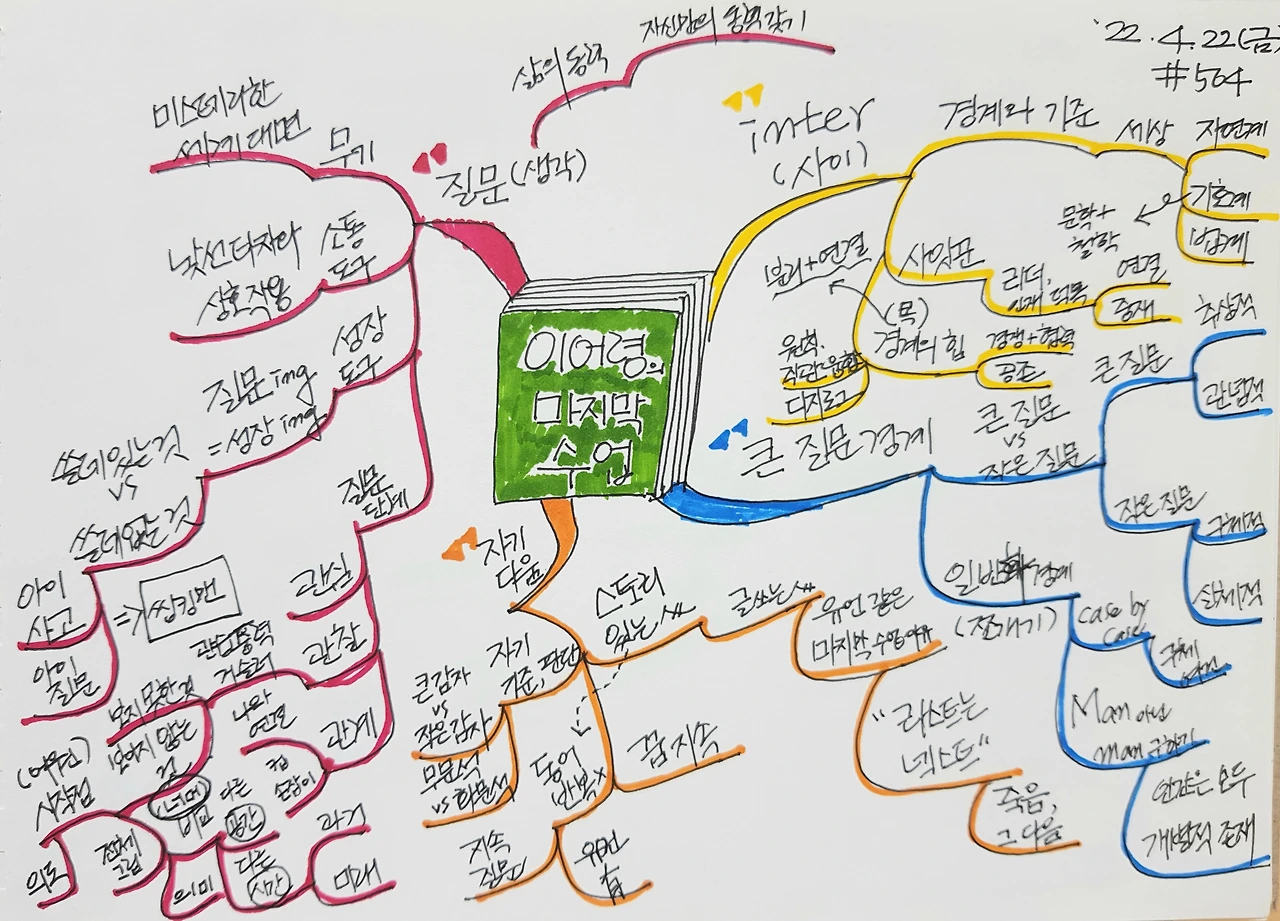 '22.4.22(금)
#564
이어령의
마지막
수업
질문(생각)
삶의 동력
자신만의 동력 갖기
무기
미스테리한
세계 대면
소통
도구
낯선 타자와
상호작용
성장
도구
질문 ing
=성장 ing
질문
단계
쓸데있는 것
vs
쓸데없는 것
아이
사고
아이
질문
=> 씽킹맨
관심
관찰
관계
나와
연결
컵
손잡이
보지 못한 것
보이지 않는
것
시작점
의도
전체
그림
의미
다른
공간
다른
시간
과거
미래
inter
(사이)
경계와 기준
세상
자연계
기호계
법계
문학+
철학
사잇꾼
리더,
인재 덕목
연결
중재
(목)
경계의 힘
분리+연결
경쟁+협력
공존
디지로그
큰 질문 경계
큰 질문
vs
작은 질문
큰 질문
추상적
관념적
작은 질문
구체적
실체적
일반화 경계
case by
case
Man 아닌
man 구하기
인간은 모두
개별적 존재
자기
다움
스토리
있는 삶
글쓰는 삶
유언 같은
마지막 수업 이유
"라스트는
넥스트"
죽음,
그 다음
꿈 지속
자기
기준, 판단
큰 감사
vs
작은 감사
동어
반복 x
지속
질문
유언
有